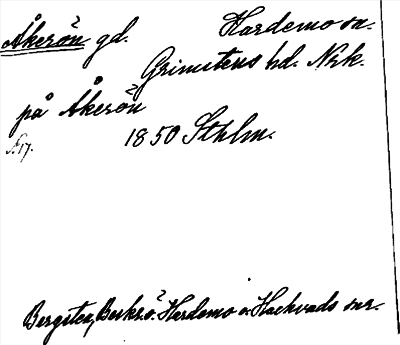 Åkerön gd. Hardemo sn.
Grimstens hd. Nrk.
på Åkerön
1850 Sthlm.
S. 17.
Bergsten, Beskr. ö. Hardemo o. Hackvads snr.